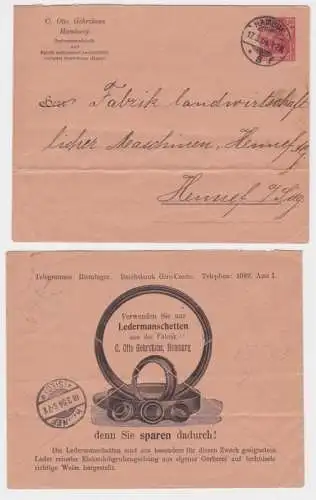 C. Otto Gehrckens
Hamburg
Riemenfabrik
und
HAMBURG
An Fabrik landwirtschaft
licher Maschinen, Hennef
Hennef a/Sieg
Telegramme: Riemfager. Reichsbank Giro-Conto. Telephon: 1082. Amt I.
Verwenden Sie nur
Ledermanschetten
aus der Fabrik
C. Otto Gehrckens, Hamburg
HENNEF
denn Sie sparen dadurch!
Die Ledermanschetten sind aus besonders für diesen Zweck geeignetem
Leder reinster Eichenlohgrubengerbung aus eigener Gerberei auf technisch
richtige Weise hergestellt.